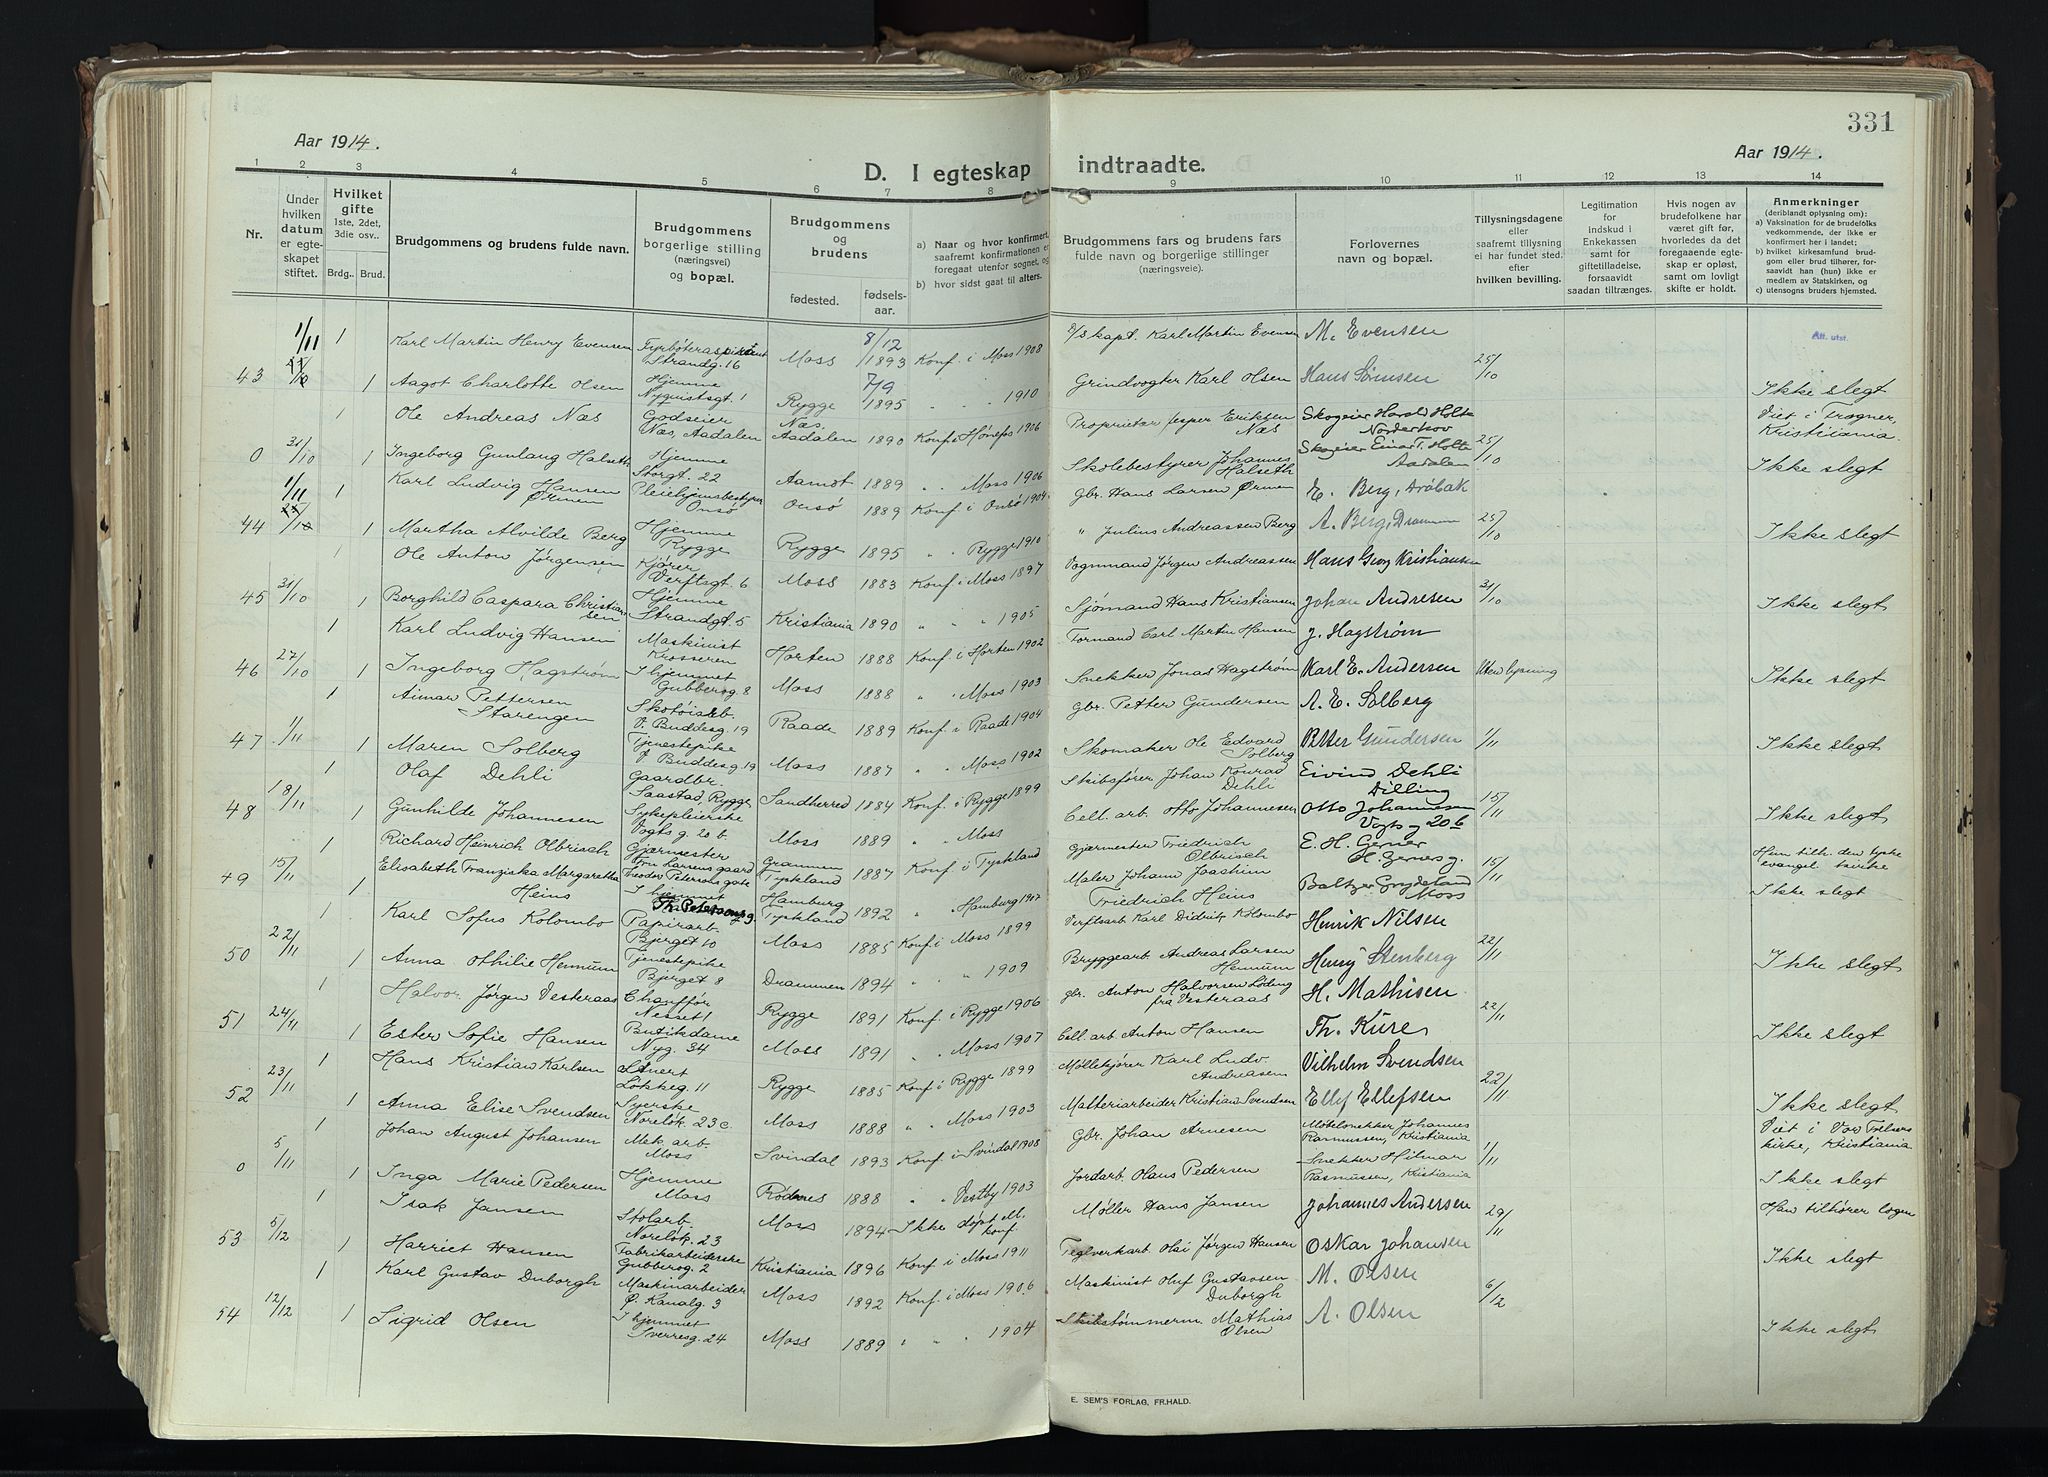 331
Aar 1914.
Aar 1914.
D. I egteskap indtraadte.
1 2 3 4 5 6 7 8 9 10 11 12 13 14
Nr.
Under hvilken datum er egteskapet stiftet.
Hvilket gifte 1ste, 2det, 3die osv..
Brdg.. Brud.
Brudgommens og brudens fulde navn.
Brudgommens borgerlige stilling (næringsvei) og bopæl.
Brudgommens og brudens
fødested. fødsels-aar.
a) Naar og hvor konfirmert, saafremt konfirmationen er foregaat utenfor sognet, og
b) hvor sidst gaat til alters.
Brudgommens fars og brudens fars fulde navn og borgerlige stillinger (næringsveie).
Forlovernes navn og bopæl.
Tillysningsdagene eller saafremt tillysning ei har fundet sted. efter hvilken bevilling.
Legitimation for indskud i Enkekassen samt for giftetilladelse, forsaavidt saadan tiltrænges.
Hvis nogen av brudefolkene har været gift før, hvorledes da det foregaaende egteskap er opløst, samt om lovligt skifte er holdt.
Anmerkninger (deriblandt oplysning om): a) Vaksination for de brudefolks vedkommende, der ikke er konfirmert her i landet; b) hvilket kirkesamfund brudgom eller brud tilhører, forsaavidt han (hun) ikke er medlem av Statskirken, og c) utensogns bruders hjemsted.
1/11 1 Karl Martin Henry Evensen Fyrbøteraspirant Strandg. 16 Moss 8/12 1893 Konf. i Moss 1908 D/S kapt. Karl Martin Evensen M. Evensen Att. utst.
43 1 Aagot Charlotte Olsen Hjemme Nyquistsgt. 1 Rygge 7/9 1895 " " 1910 Grindvogter Karl Olsen Hans Sørnsen 25/10 Ikke slegt
1 Ole Andreas Næs Godseier Næs, Aadalen Næs, Aadalen 1890 Konf. i Hønefos 1906 Proprietær Jesper Eriksen Næs Skogeier Harald Holte Norderhov Viet i Trogner, Kristiania.
0 31/10 1 Ingeborg Gunlaug Halseth Hjemme Storgt. 22 Aamot 1889 " " Moss 1906 Skolebestyrer Johannes Halseth Skogeier Einar T. Holte Aadalen 25/10 Ikke slegt
1/11 1 Karl Ludvig Hansen Ørmen Pleiehjemsbestyrer Onsø Onsø 1889 Konf. i Onsø 1904 Gbr. Hans Larsen Ørmen E. Berg, Drøbak
44 1 Martha Alvilde Berg Hjemme Rygge Rygge 1895 " " Rygge 1910 " Julius Andreassen Berg A. Berg, Drammen 25/10 Ikke slegt
1 Ole Anton Jørgensen Kjører Verftsgt. 6 Moss 1883 Konf. i Moss 1897 Vognmand Jørgen Andreassen Hans Georg Kristiansen
45 31/10 1 Borghild Caspara Christiansen Hjemme Strandgt. 5 Kristiania 1890 " " " 1905 Sjømand Hans Kristiansen Johan Andresen 31/10 Ikke slegt
1 Karl Ludvig Hansen Maskinist Krosseren Horten 1888 Konf. i Horten 1902 Formand Carl Martin Hansen J. Hagstrøm
46 27/10 1 Ingeborg Hagstrøm I hjemmet Gubberog. 8 Moss 1888 " " Moss 1903 Snekker Jonas Hagstrøm Karl E. Andersen Uten lysning Ikke slegt
1 Aimar Pettersen Starengen Skotøiarb. V. Buddesg. 19 Raade 1889 Konf. i Raade 1904 Gbr. Petter Gundersen A. E. Solberg
47 1/11 1 Maren Solberg Tjenestepike V. Buddesg. 19 Moss 1887 " " Moss 1902 Skomaker Ole Edvard Solberg Petter Gundersen 1/11 Ikke slegt
1 Olaf Dehli Gaardbr. Saastad, Rygge Sandherred 1884 Konf. i Rygge 1899 Skibsfører Johan Konrad Dehli Eivind Dehli Dilling
48 18/11 1 Gunhilde Johannesen Sykepleierske Vogts g. 20 b. Moss 1889 " " Moss Cell. arb. Otto Johannesen Otto Johannesen Vogts g 20b 15/11 Ikke slegt
1 Richard Heinrich Olbrisch Gjærmester Fru Larsens gaard Theodor Petersons gate Tyskland 1887 Konf. i Tyskland Gjærmester Friedrich Olbrisch E. H. Gerner H. Gernersg. Hun tilh. den tyske evangel. kirke
49 15/11 1 Elisabeth Franziska Margaretha Heins I hjemmet Th. Petersons g Hamburg Tyskland 1892 " Hamburg 1907 Maler Johann Joachim Friedrich Heins Baltzer Grydeland Moss 15/11 Ikke slegt
1 Karl Sofus Kolombo Papirarb. Bjerget 10 Moss 1885 Konf. i Moss 1899 Verftsarb. Karl Didrik Kolombo Henrik Nilsen
50 22/11 1 Anna Othilie Hennum Tjenestepike Bjerget 8 Drammen 1894 " " 1909 Bryggearb. Andreas Larsen Hennum Henry Stenberg 22/11 Ikke slegt
1 Halvor Jørgen Vesteraas Chauffør Nesset 1 Rygge 1891 Konf. i Rygge 1906 Gbr. Anton Halvorsen Løding fra Vesteraas H. Mathisen
51 24/11 1 Ester Sofie Hansen Butikdame Nyg. 34 Moss 1891 " " Moss 1907 Cell. arb Anton Hansen Th. Kure 22/11 Ikke slegt
1 Hans Kristian Karlsen Løkkeg. 11 Rygge 1885 Konf. i Rygge 1899 Møllekjører Karl Ludv. Andreasen Vilhelm Svendsen
52 23/11 1 Anna Elise Svendsen Syerske Noreløk. 23 c. Moss 1888 " " Moss 1903 Malteriarbeider Kristian Svendsen Elly Ellefsen 22/11 Ikke slegt
1 Johan August Johansen Mek. arb. Moss Svindal 1893 Konf. i Svindal 1908 Gbr. Johan Arnesen Møbelsnekker Johannes Rasmussen, Kristiania Viet i Vor Frelsers kirke, Kristiania
0 5/11 1 Inga Marie Pedersen Hjemme Moss Rødnes 1888 " " Vestby 1903 Jordarb. Hans Pedersen Snekker Hilmar Rasmussen, Kristiania 1/11 Ikke slegt
1 Isak Jansen Stolarb. Noreløk. 23 Moss 1894 Ikke døpt ell. konf. Møller Hans Jansen Johannes Andersen Han tilhører logen
53 5/12 1 Harriet Hansen Fabrikarbeiderske Gubberog. 2 Kristiania 1896 Konf. i Moss 1911 Teglverkarb. Olai Jørgen Hansen Oskar Johansen 29/11 Ikke slegt
1 Karl Gustav Duborgh Maskinarbeider Ø. Kanalg. 3 Moss 1892 Konf. i Moss 1906 Maskinist Oluf Gustavsen Duborgh M. Olsen
54 12/12 1 Sigrid Olsen I hjemmet Sverresg. 24 Moss 1889 " " " 1904 Skibstømmerm. Mathias Olsen A. Olsen 6/12 Ikke slegt
E. SEM'S FORLAG, FR.HALD.